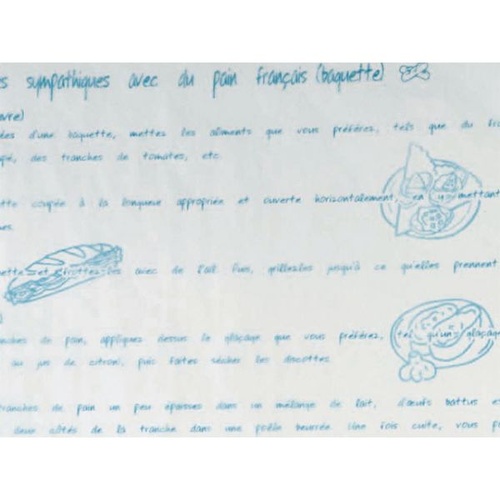 es sympathiques avec du pain français (baguette)
vre)
ées d'une baguette, mettez les aliments que vous préférez, tels que du fro
pé, des tranches de tomates, etc.
tte coupée à la longueur appropriée et ouverte horizontalement, en y mettant
ues.
ette et frottez-les avec de l'ail. Puis, grillez-les jusqu'à ce qu'elles prennent
)
nches de pain, appliquez dessus le glaçage que vous préférez, tel qu'un glaçage
au jus de citron), puis faites sécher les biscottes.
tranches de pain un peu épaisses dans un mélange de lait, d'œufs battus e
deux côtés de la tranche dans une poêle beurrée. Une fois cuite, vous p